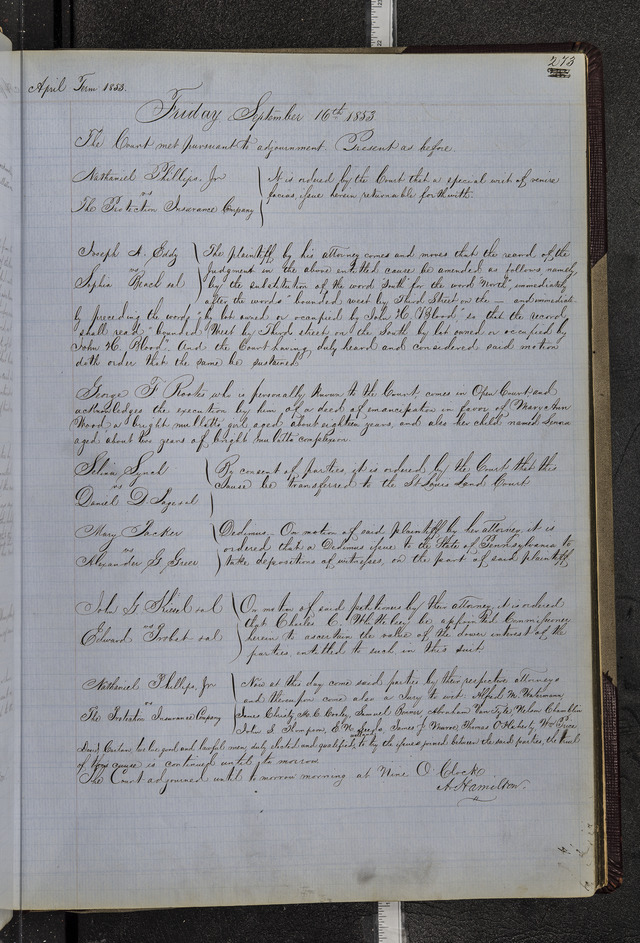 273
April Term 1853.
Friday September 16th 1853
The Court met pursuant to adjournment. Present as before.
Nathaniel Phillips, Jr
vs
The Protection Insurance Company
It is ordered by the Court that a special writ of venire
facias issue herein returnable forthwith.
Joseph A. Eddy
vs
Sophia et al
The plaintiff by his attorney comes and moves that the record of the
judgment in the above entitled cause be amended as follows, namely
"by the substitution of the word South" for the word North" immediately
after the words "bounded west by Third Street on the — and immediate-
ly preceding the words "by lot owned or occupied by John H. Blood" so that the record
shall read, "bounded West by Third street, on the South by lot owned or occupied by
John H. Blood". And the Court having duly heard and considered said motion
doth order that the same be sustained
George F. who is personally known to the Court, comes in Open Court and
acknowledges the execution by him of a deed of emancipation in favor of Mary Ann
Wood a bright mulatto girl aged about eighteen years, and also her child named
aged about two years of bright mulatto complexion.
vs
Daniel D.
By consent of parties, it is ordered by the Court that this
Cause be transferred to the St Louis Land Court
Mary
vs
Alexander G.
Dedimus. On motion of said plaintiff by her attorney, it is
ordered that a Dedimus issue to the State of Pennsylvania to
take depositions of witnesses, on the part of said plaintiff
John G. et al
vs
Edward et al
On motion of said petitioners by their attorney it is ordered
that Charles C. be appointed Commissioner
herein to ascertain the value of the dower interest of the
parties entitled to such, in this suit
Nathaniel Phillips, Jr
vs
The Protection Insurance Company
Now at this day come said parties by their respective attorneys
and thereupon come also a Jury to wit: M.
James Christy, H. C. Samuel Abraham Nelson
John S. Thompson, James J. Thomas Wm
twelve good and lawful men, duly elected and qualified, to try the issue joined between the said parties, the trial
of cause is continued until to morrow
The Court adjourned until to morrow morning at Nine O'Clock
A. Hamilton.